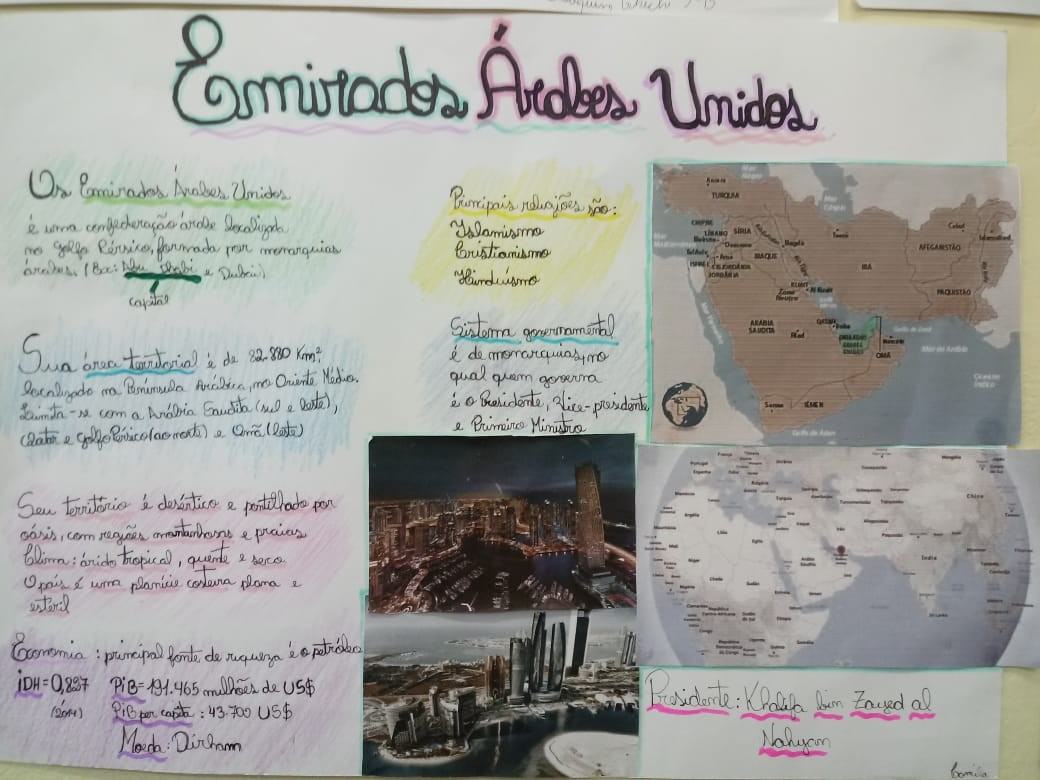 Emirados Árabes Unidos
Os Emirados Árabes Unidos
é uma confederação árabe localizada
no golfo Pérsico, formada por monarquias
árabes. (Ex: Abu Dhabi e Dubai)
capital
Sua área territorial é de 82.880 Km²
localizado na Península Arábica, no Oriente Médio.
Limita-se com a Arábia Saudita (sul e leste),
Catar e golfo Pérsico (ao norte) e Omã (leste)
Seu território é desértico e pontilhado por
oásis, com regiões montanhosas e praias
Clima: árido tropical, quente e seco
O país é uma planície costeira plana e
estéril
Economia: principal fonte de riqueza é o petróleo
iDH = 0,827 PiB = 191.465 milhões de US$
(2014) PiB per capita: 43.700 US$
Moeda: Dirham
Principais religiões são:
Islamismo
Cristianismo
Hinduísmo
Sistema governamental
é de monarquias, no
qual quem governa
é o Presidente, Vice-presidente
e Primeiro Ministro
TURQUIA
CHIPRE
LÍBANO
SÍRIA
IRAQUE
JORDÂNIA
IRÃ
AFEGANISTÃO
PAQUISTÃO
KUAIT
Zona
Neutra
ARÁBIA
SAUDITA
Riad
QATAR
Doha
EMIRADOS
ÁRABES
UNIDOS
OMÃ
IÊMEN
Mar Vermelho
Golfo de Omã
Mar da Arábia
Oceano
Índico
Golfo de Áden
Portugal
Espanha
França
Turquia
Argélia
Líbia
Egito
Mali
Níger
Chade
Sudão
Iêmen
Arábia
Saudita
Etiópia
Somália
Quênia
Irã
Afeganistão
Paquistão
Índia
China
Mongólia
Cazaquistão
Sri Lanka
Presidente: Khalifa bin Zayed al
Nahyan
Camila